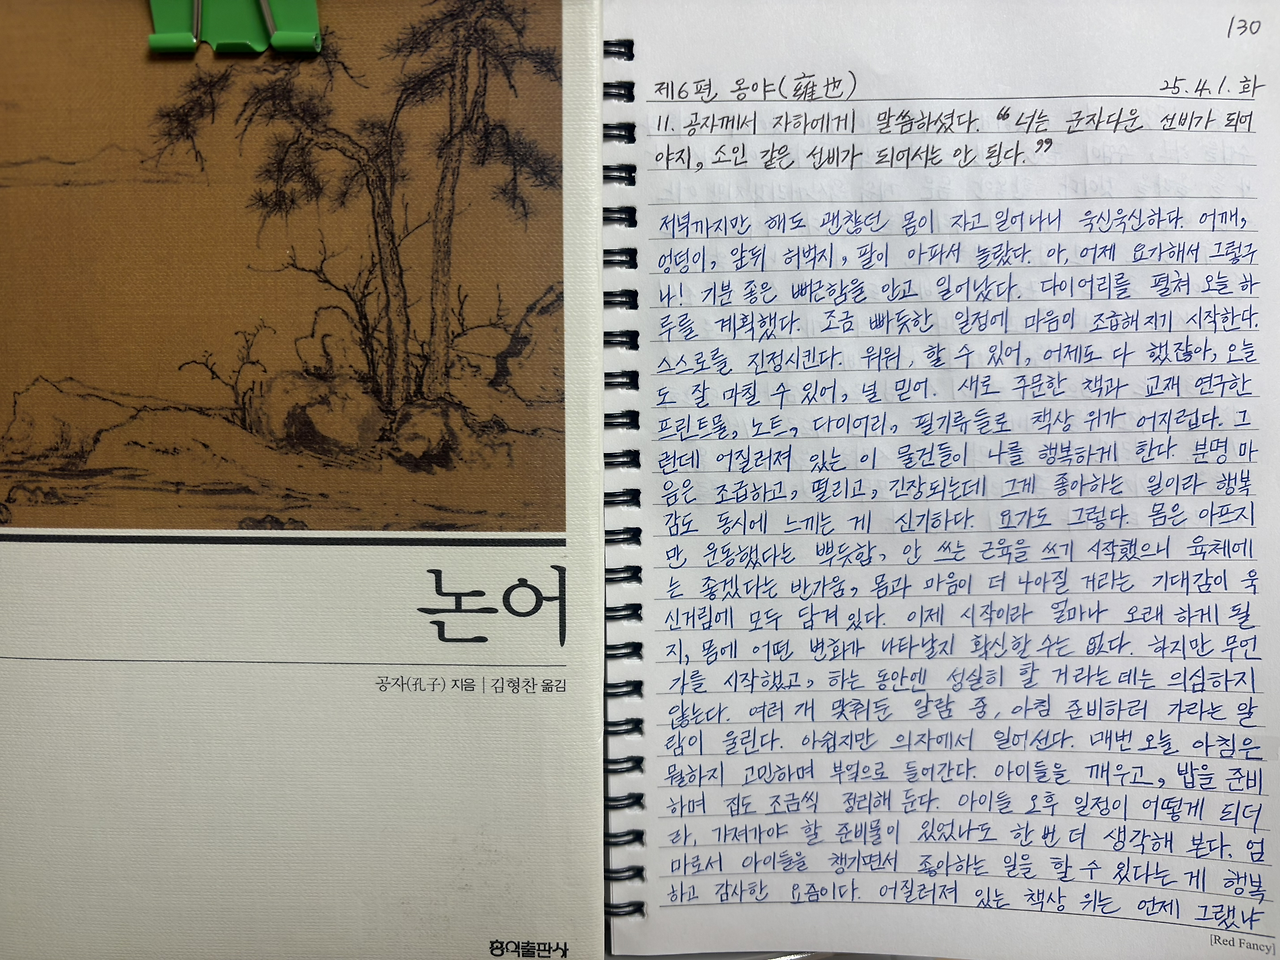 논어
공자(孔子) 지음 | 김형찬 옮김
홍익출판사
130
제6편 옹야(雍也) 25.4.1. 화
11. 공자께서 자하에게 말씀하셨다. "너는 군자다운 선비가 되어
야지, 소인 같은 선비가 되어서는 안 된다."
저녁까지만 해도 괜찮던 몸이 자고 일어나니 욱신욱신하다. 어깨,
엉덩이, 앞뒤 허벅지, 팔이 아파서 놀랐다. 아, 어제 요가해서 그렇구
나! 기분 좋은 뻐근함을 안고 일어났다. 다이어리를 펼쳐 오늘 하
루를 계획했다. 조금 빠듯한 일정에 마음이 조급해지기 시작한다.
스스로를 진정시킨다. 워워, 할 수 있어, 어제도 다 했잖아, 오늘
도 잘 마칠 수 있어, 널 믿어. 새로 주문한 책과 교재 연구한
프린트물, 노트, 다이어리, 필기류들로 책상 위가 어지럽다. 그
런데 어질러져 있는 이 물건들이 나를 행복하게 한다. 분명 마
음은 조급하고, 떨리고, 긴장되는데 그게 좋아하는 일이라 행복
감도 동시에 느끼는 게 신기하다. 요가도 그렇다. 몸은 아프지
만 운동했다는 뿌듯함, 안 쓰는 근육을 쓰기 시작했으니 육체에
는 좋겠다는 반가움, 몸과 마음이 더 나아질 거라는 기대감이 욱
신거림에 모두 담겨 있다. 이제 시작이라 얼마나 오래 하게 될
지, 몸에 어떤 변화가 나타날지 확신할 수는 없다. 하지만 무언
가를 시작했고, 하는 동안엔 성실히 할 거라는 데는 의심하지
않는다. 여러 개 맞춰둔 알람 중, 아침 준비하러 가라는 알
람이 울린다. 아쉽지만 의자에서 일어선다. 매번 오늘 아침은
뭘하지 고민하며 부엌으로 들어간다. 아이들을 깨우고, 밥을 준비
하며 집도 조금씩 정리해 둔다. 아이들 오후 일정이 어떻게 되더
라, 가져가야 할 준비물이 있었나도 한 번 더 생각해 본다. 엄
마로서 아이들을 챙기면서 좋아하는 일을 할 수 있다는 게 행복
하고 감사한 요즘이다. 어질러져 있는 책상 위는 언제 그랬냐
[Red Fancy]